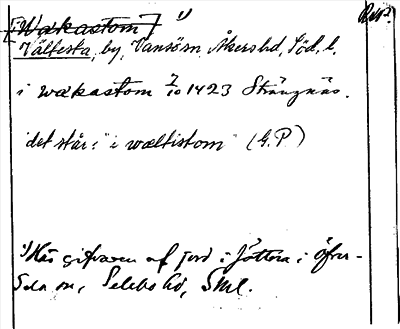 [Wakastom] 1)
Rep.
Valtesta, by, Vansörn Åkers hd, Söd. l.
i wakastom 7/10 1423 Strängnäs.
det står: "i wæltistom" (G.P)
1) Här gifvaren af jord i Jöttern i Öfver-
Selebo hd, Sml.